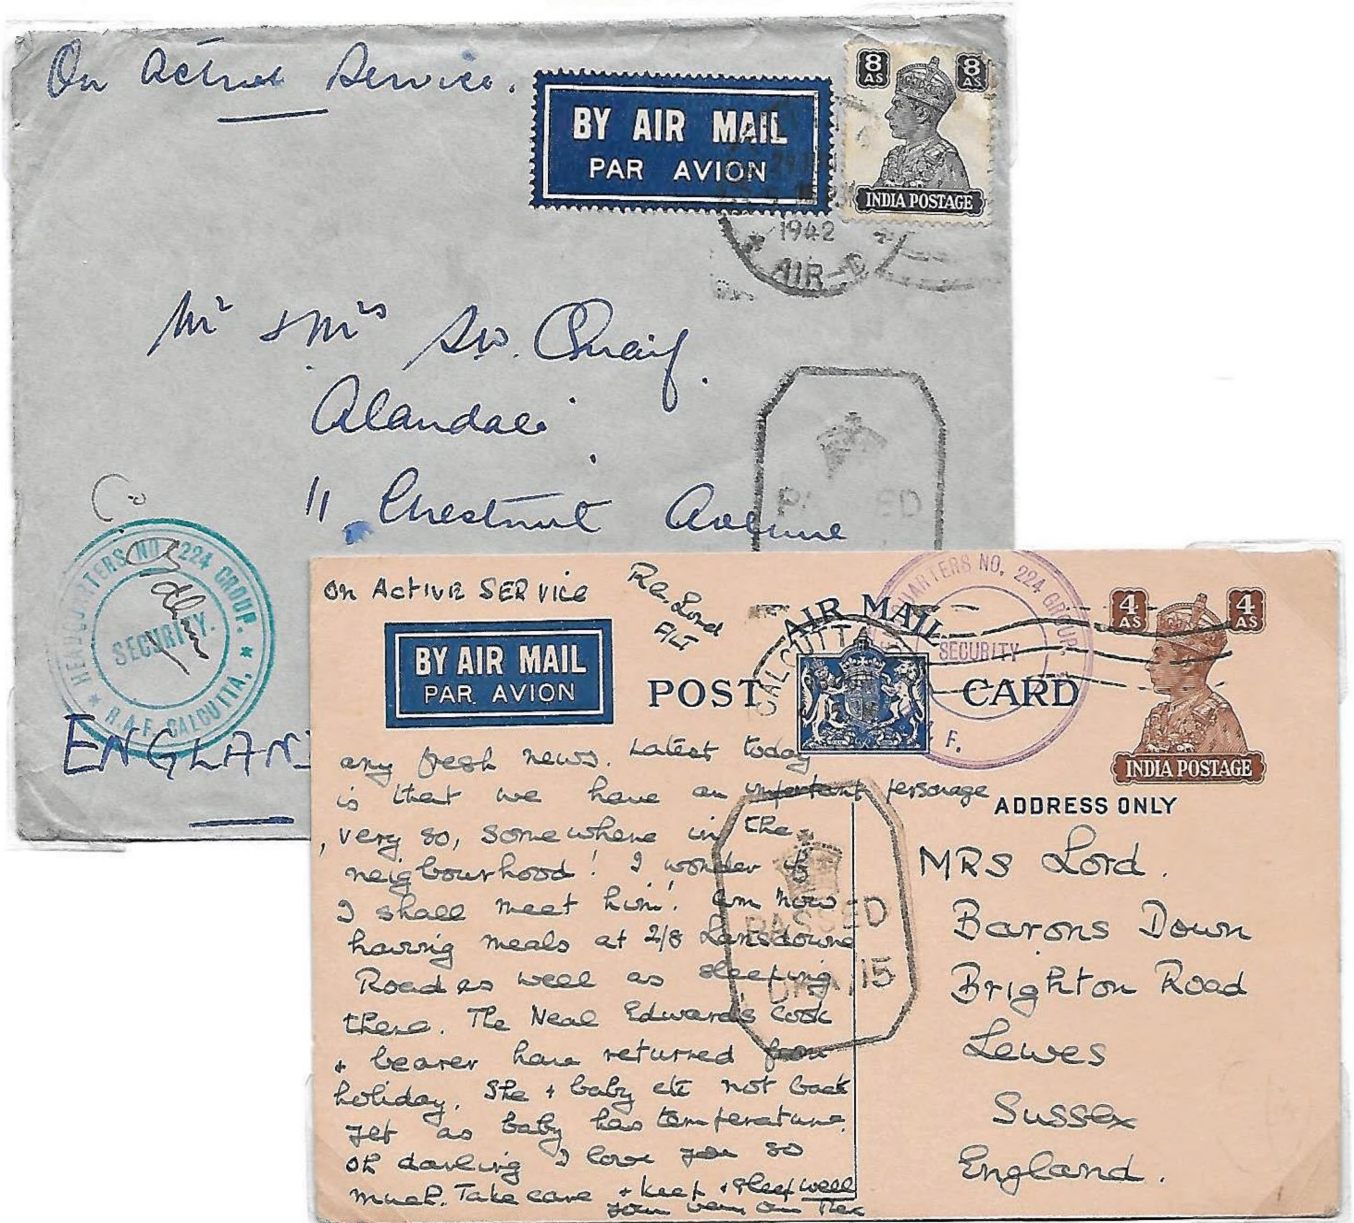 On Active Service.
BY AIR MAIL
PAR AVION
8 AS 8 AS
INDIA POSTAGE
1942
AIR-D
Mr & Mrs Sw. Quaif.
Alandale
11 Chestnut Avenue
PASSED
HEADQUARTERS NO. 224 GROUP.
SECURITY.
R.A.F. CALCUTTA.
ENGLAND
On ACTIVE SERVICE
Rex. Lord
F/LT
BY AIR MAIL
PAR AVION
AIR MAIL
POST CARD
CALCUTTA
QUARTERS NO. 224 GROUP.
SECURITY
F.
4 AS 4 AS
INDIA POSTAGE
ADDRESS ONLY
any fresh news. Latest today
is that we have an important personage
, very so, somewhere in the
neigbourhood! I wonder if
I shall meet him! am now
having meals at 2/8 Lansdowne
Road as well as sleeping
there. The Neal Edwards cook
+ bearer have returned from
holiday. She + baby etc not back
yet as baby has temperature.
Oh darling I love you so
much. Take care + keep + sleep well
your very own Rex
PASSED
DHA/15
MRS Lord.
Barons Down
Brighton Road
Lewes
Sussex
England.